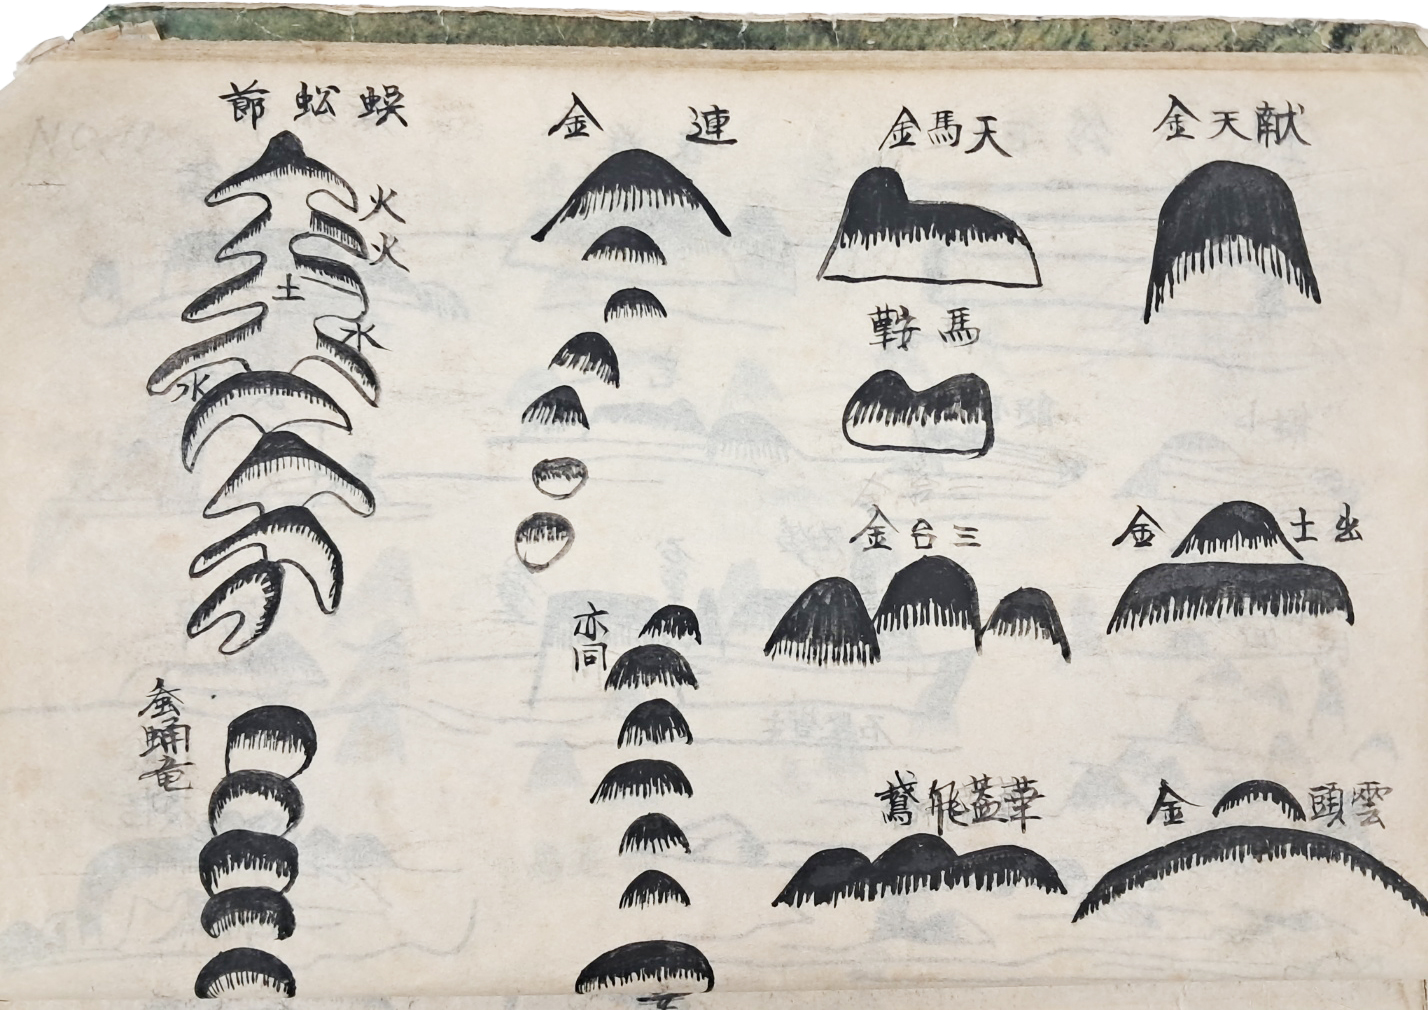 献天金
出土金
雲頭金
天馬金
馬鞍
三台金
華蓋飛鵞
連金
亦同
蜈蚣莭
火
火
土
水
水
蚕蛹竜